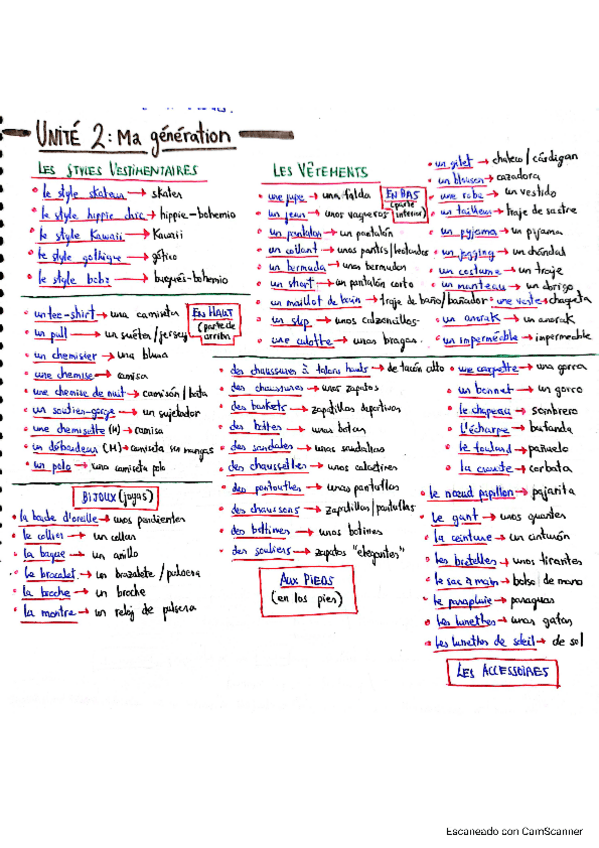 UNITÉ 2: Ma génération
LES STYLES VESTIMENTAIRES
le style skateur → skater
le style hippie chic → hippie-bohemio
le style Kawaii → Kawaii
le style gothique → gótico
le style bobo → burgués-bohemio
LES VÊTEMENTS
une jupe → una falda
un jean → unos vaqueros
un pantalon → un pantalón
un collant → unos pantis/leotardos
un bermuda → unas bermudas
un short → un pantalón corto
un maillot de bain → traje de baño/bañador
un slip → unos calzoncillos
une culotte → unas bragas
EN BAS
(parte inferior)
un gilet → chaleco / cárdigan
un blouson → cazadora
une robe → un vestido
un tailleur → traje de sastre
un pyjama → un pijama
un jogging → un chándal
un costume → un traje
un manteau → un abrigo
une veste → chaqueta
un anorak → un anorak
un imperméable → impermeable
un tee-shirt → una camiseta
un pull → un suéter/jersey
un chemisier → una blusa
une chemise → camisa
une chemise de nuit → camisón/bata
un soutien-gorge → un sujetador
une chemisette (H) → camisa
un débardeur (H) → camiseta sin mangas
un polo → una camiseta polo
EN HAUT
(parte de arriba)
BIJOUX (joyas)
la boucle d'oreille → unos pendientes
le collier → un collar
la bague → un anillo
le bracelet → un brazalete / pulsera
la broche → un broche
la montre → un reloj de pulsera
des chaussures à talons hauts → de tacón alto
des chaussures → unos zapatos
des baskets → zapatillas deportivas
des bottes → unas botas
des sandales → unas sandalias
des chaussettes → unos calcetines
des pantoufles → unas pantuflas
des chaussons → zapatillas/pantuflas
des bottines → unos botines
des souliers → zapatos "elegantes"
AUX PIEDS
(en los pies)
une casquette → una gorra
un bonnet → un gorro
le chapeau → sombrero
l'écharpe → bufanda
le foulard → pañuelo
la cravate → corbata
le nœud papillon → pajarita
le gant → unos guantes
la ceinture → un cinturón
les bretelles → unos tirantes
le sac à main → bolso de mano
le parapluie → paraguas
les lunettes → unas gafas
les lunettes de soleil → de sol
LES ACCESSOIRES
Escaneado con CamScanner